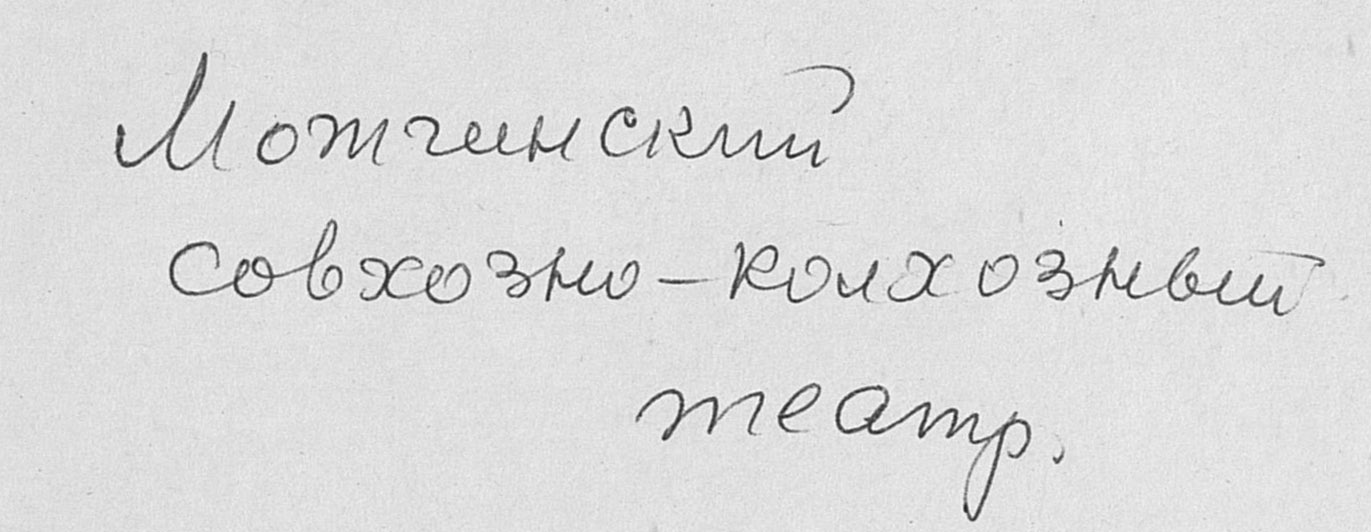 Мотчинский
совхозно-колхозный
театр.